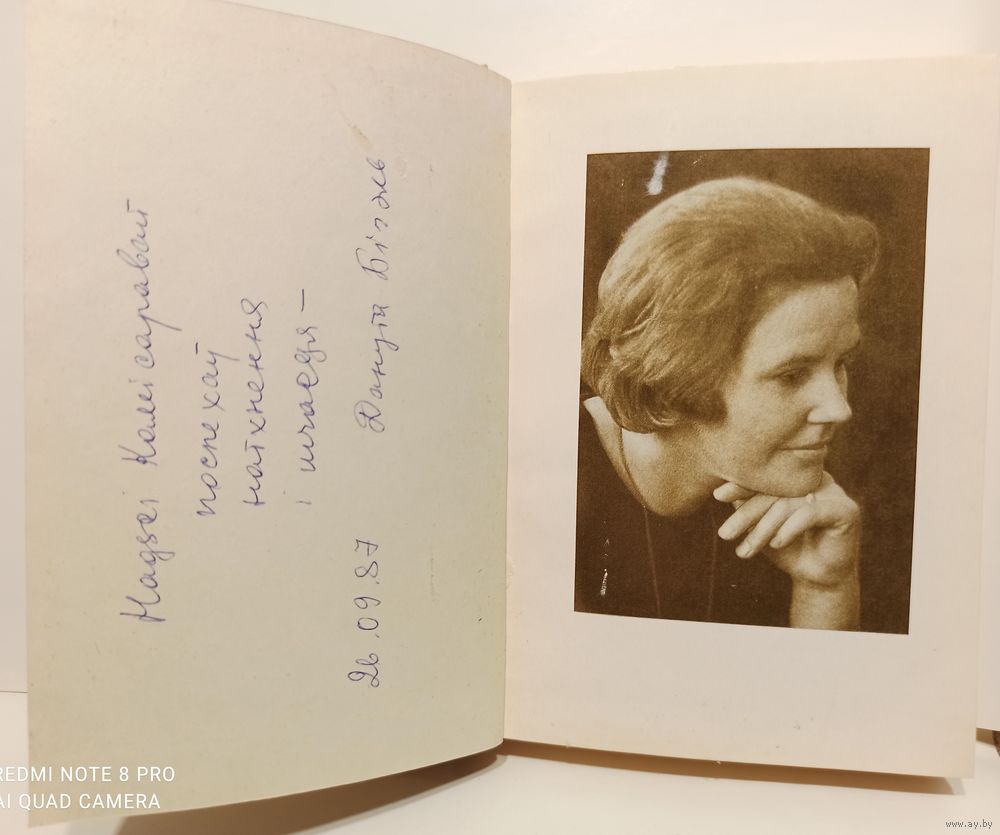 Надзеі Камісаравай
поспехаў
натхнення
і шчасця –
Данута Бічэль
26.09.87
REDMI NOTE 8 PRO
AI QUAD CAMERA
www.ay.by